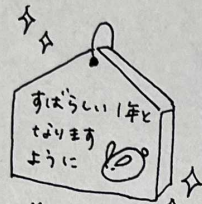 すばらしい1年と
なります
ように